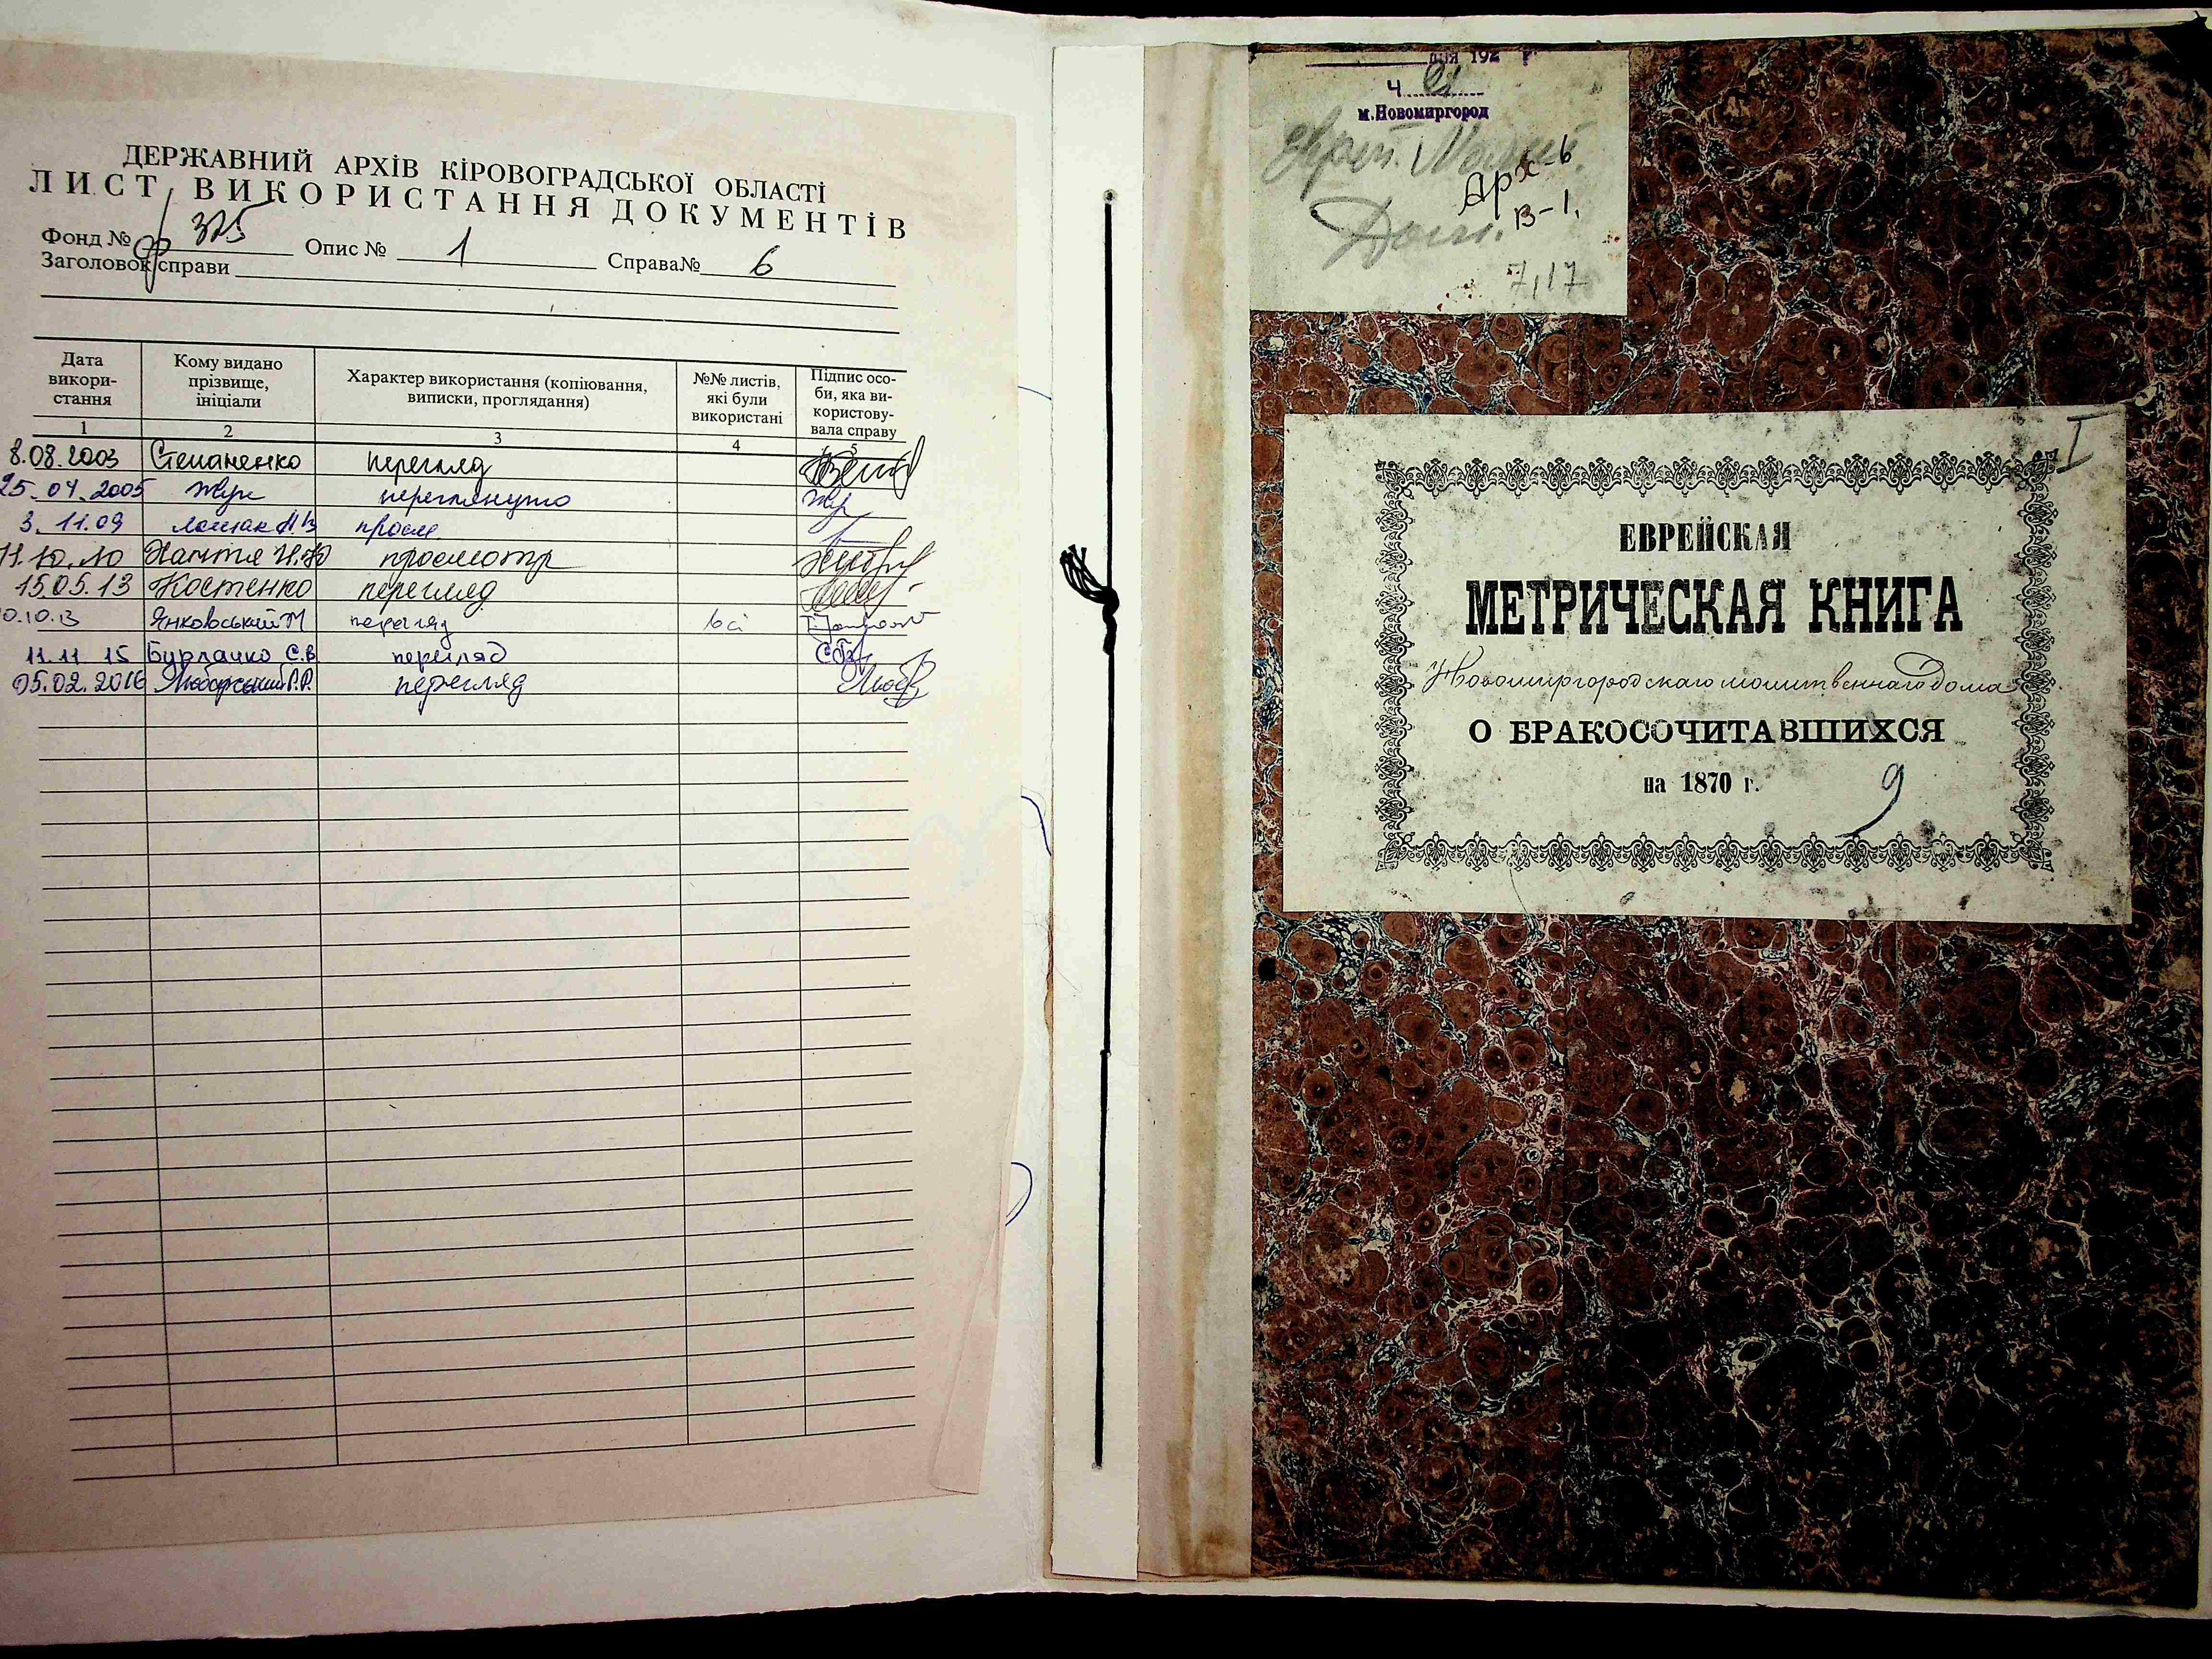 ДЕРЖАВНИЙ АРХІВ КІРОВОГРАДСЬКОЇ ОБЛАСТІ
ЛИСТ ВИКОРИСТАННЯ ДОКУМЕНТІВ
Фонд № ф 375 Опис № 1 Справа№ 6
Заголовок справи
Дата викори-стання
Кому видано прізвище, ініціали
Характер використання (копіювання, виписки, проглядання)
№№ листів, які були використані
Підпис осо-би, яка ви-користову-вала справу
1 2 3 4 5
8.08.2003 Степаненко перегляд
25.04.2005 Жук переглянуто
3.11.09
11.10.10 просмотр
15.05.13 Костенко перегляд
0.10.13 Янковський М перегляд всі
11.11 15 Бурлачко С.В. перегляд
05.02.2016 перегляд
дня 192 г
ч
м.Новомиргород
Арх-ь
В-1.
7,17
I
ЕВРЕЙСКАЯ
МЕТРИЧЕСКАЯ КНИГА
Новомиргородскаго молитвеннаго дома
О БРАКОСОЧИТАВШИХСЯ
на 1870 г.
9